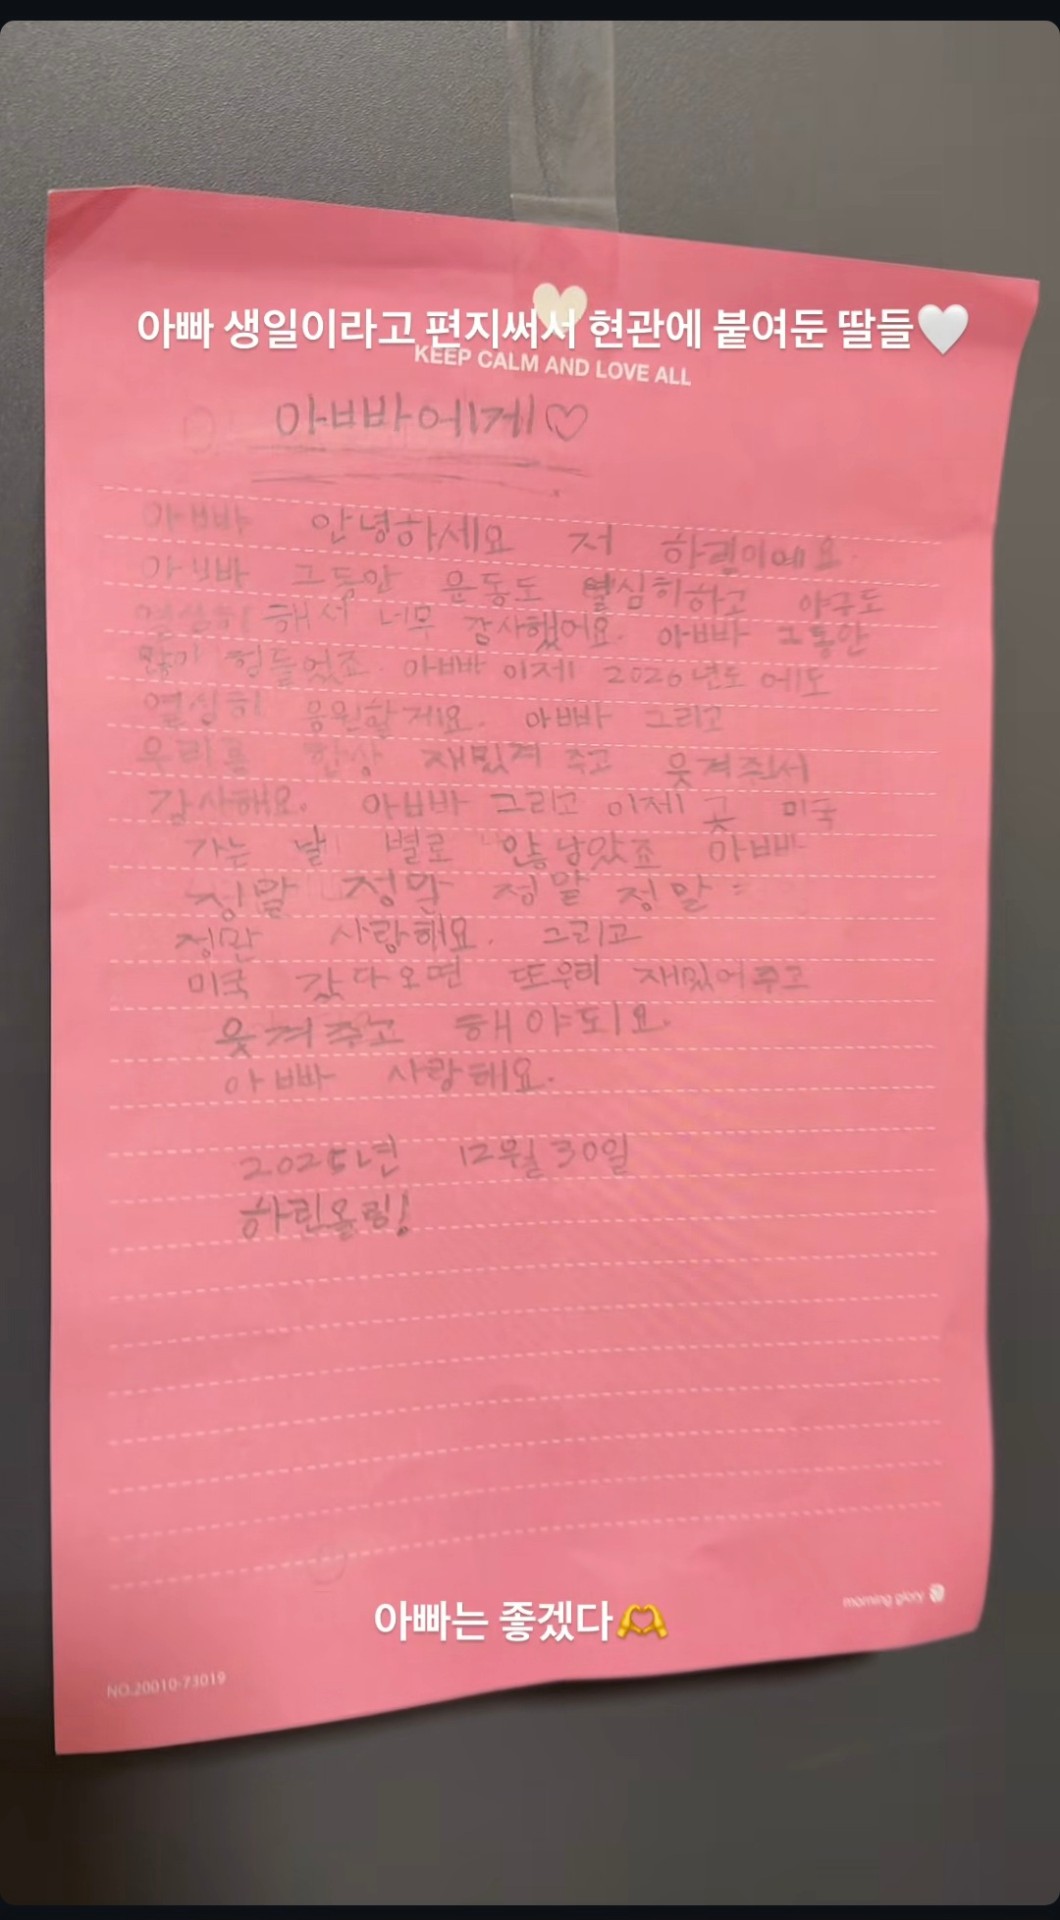 아빠 생일이라고 편지써서 현관에 붙여둔 딸들🤍
KEEP CALM AND LOVE ALL
아빠에게♡
아빠 안녕하세요 저 하린이에요.
아빠 그동안 운동도 열심히하고 야구도
열심히 해서 너무 감사했어요. 아빠 그동안
많이 힘들었죠. 아빠 이제 2026년도 에도
열심히 응원할게요. 아빠 그리고
우리를 항상 재밌겨 주고 웃겨줘서
감사해요. 아빠 그리고 이제 곳 미국
가는 날 별로 안남았죠 아빠
정말 정말 정말 정말
정말 사랑해요. 그리고
미국 갔다오면 또우리 재밌어주고
웃겨주고 해야되요.
아빠 사랑해요.
2025년 12월 30일
하린올림!
morning glory
아빠는 좋겠다🫶
NO.20010-73019